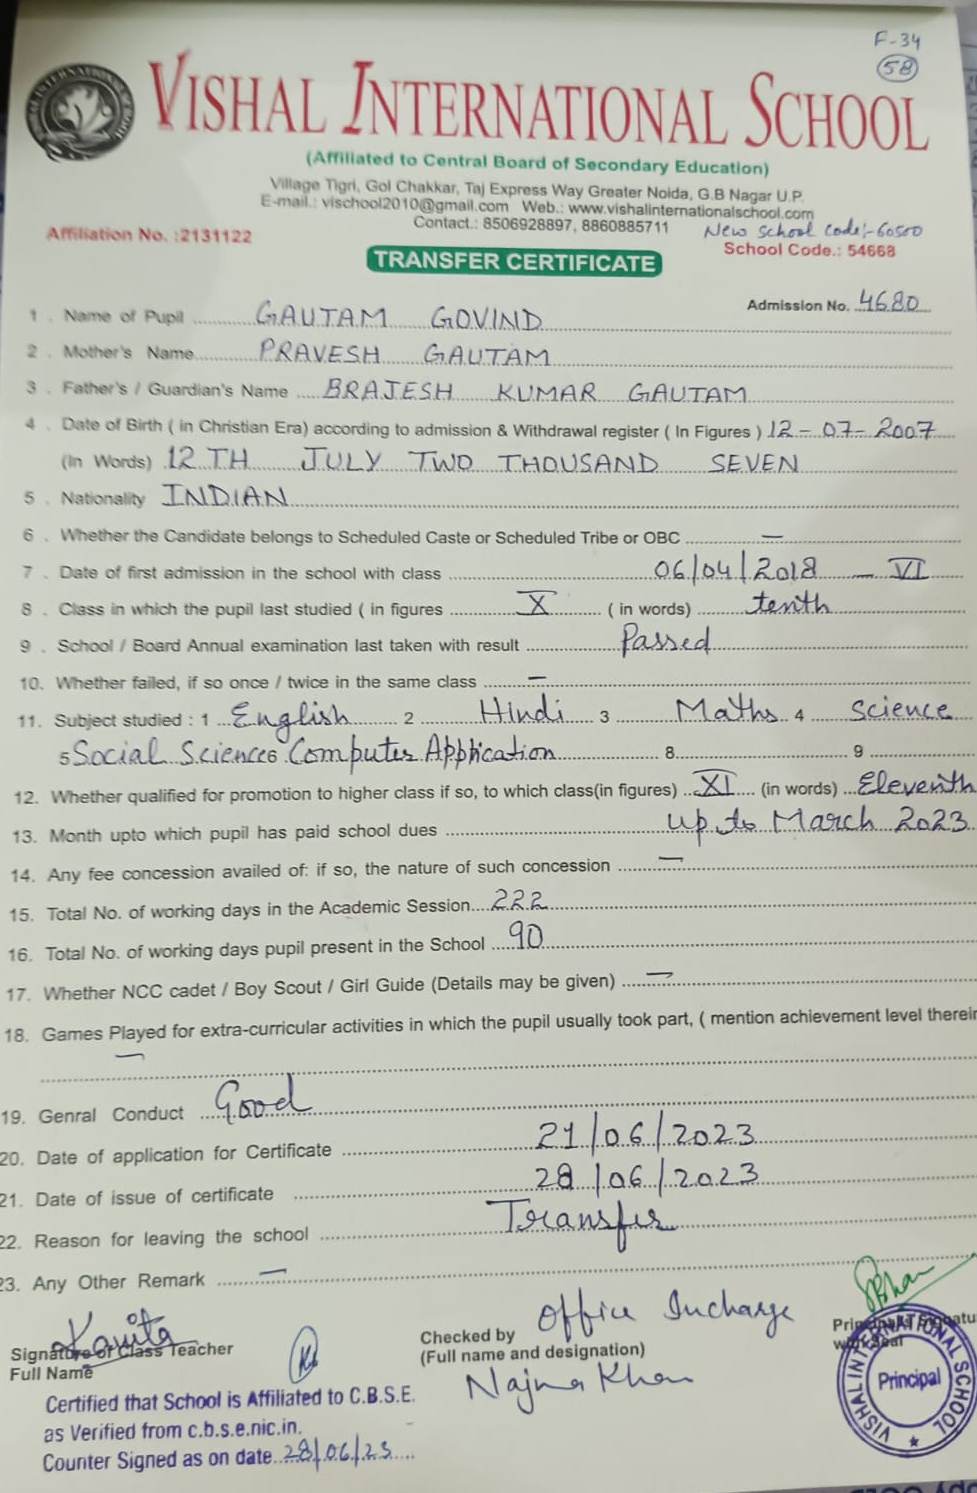 F-34
58
VISHAL INTERNATIONAL SCHOOL
(Affiliated to Central Board of Secondary Education)
Village Tigri, Gol Chakkar, Taj Express Way Greater Noida, G.B Nagar U.P.
E-mail.: vischool2010@gmail.com Web.: www.vishalinternationalschool.com
Contact.: 8506928897, 8860885711
New School Code:-60500
Affiliation No. :2131122
School Code.: 54668
TRANSFER CERTIFICATE
Admission No. 4680
1 . Name of Pupil GAUTAM GOVIND
2 . Mother's Name PRAVESH GAUTAM
3 . Father's / Guardian's Name BRAJESH KUMAR GAUTAM
4 . Date of Birth ( in Christian Era) according to admission & Withdrawal register ( In Figures ) 12-07-2007
(In Words) 12 TH JULY TWO THOUSAND SEVEN
5 . Nationality INDIAN
6 . Whether the Candidate belongs to Scheduled Caste or Scheduled Tribe or OBC —
7 . Date of first admission in the school with class 06/04/2018 — VI
8 . Class in which the pupil last studied ( in figures X ( in words) tenth
9 . School / Board Annual examination last taken with result Passed
10. Whether failed, if so once / twice in the same class —
11. Subject studied : 1 English 2 Hindi 3 Maths 4 Science
5 Social Sciences 6 Computer Application 8 9
12. Whether qualified for promotion to higher class if so, to which class(in figures) XI (in words) Eleventh
13. Month upto which pupil has paid school dues up to March 2023
14. Any fee concession availed of: if so, the nature of such concession —
15. Total No. of working days in the Academic Session 222
16. Total No. of working days pupil present in the School 90
17. Whether NCC cadet / Boy Scout / Girl Guide (Details may be given) —
18. Games Played for extra-curricular activities in which the pupil usually took part, ( mention achievement level therein
—
19. Genral Conduct Good
20. Date of application for Certificate 21/06/2023
21. Date of issue of certificate 28/06/2023
22. Reason for leaving the school Transfer
23. Any Other Remark —
Kavita
Signature of Class Teacher
Full Name
Checked by Office Incharge
(Full name and designation)
Najma Khan
with Seal
VISHAL INTERNATIONAL SCHOOL
Principal
Certified that School is Affiliated to C.B.S.E.
as Verified from c.b.s.e.nic.in.
Counter Signed as on date 28/06/23